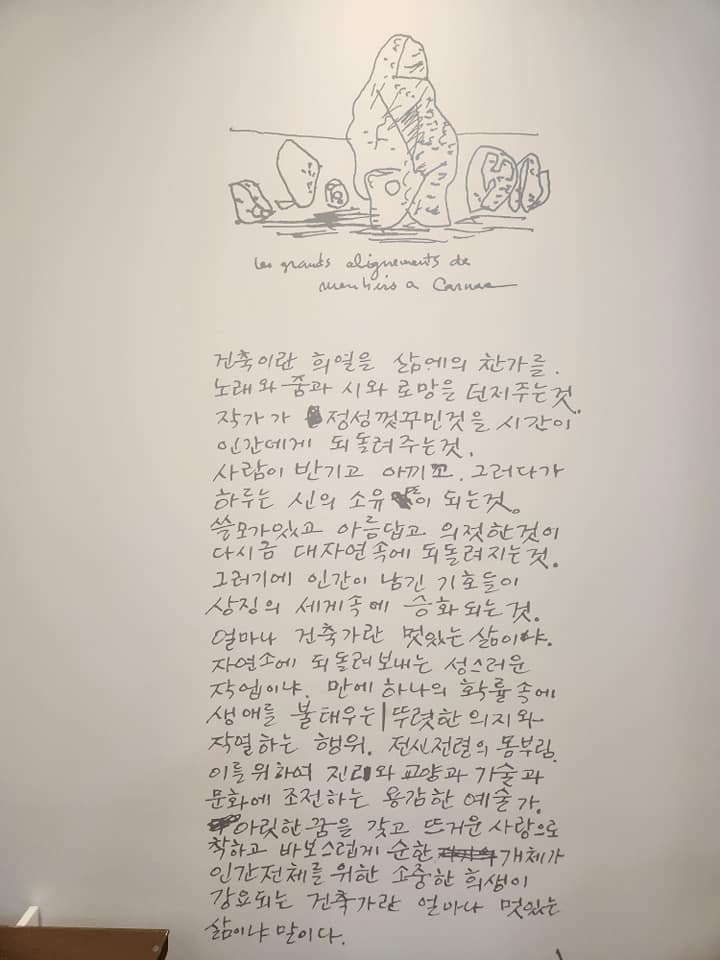 les grands alignements de
menhirs a Carnac
건축이란 희열을 삶에의 찬가를.
노래와 춤과 시와 로망을 던져주는것.
작가가 정성껏꾸민것을 시간이
인간에게 되돌려주는것.
사람이 반기고 아끼고. 그러다가
하루는 신의 소유 이 되는것.
쓸모가있고 아름답고 의젓한것이
다시금 대자연속에 되돌려지는것.
그러기에 인간이 남긴 기호들이
상징의 세계속에 승화되는것.
얼마나 건축가란 멋있는삶이냐.
자연소에 되돌려보내는 성스러운
작업이냐. 만에하나의 확률속에
생애를 불태우는 뚜렷한 의지와
작열하는 행위. 전신전렬의 몸부림.
이를위하여 진리와 교양과 기술과
문화에 조전하는 용감한 예술가.
아릿한꿈을 갖고 뜨거운사랑으로
착하고 바보스럽게 순한 개체가
인간전체를 위한 소중한 희생이
강요되는 건축가란 얼마나 멋있는
삶이냐말이다.